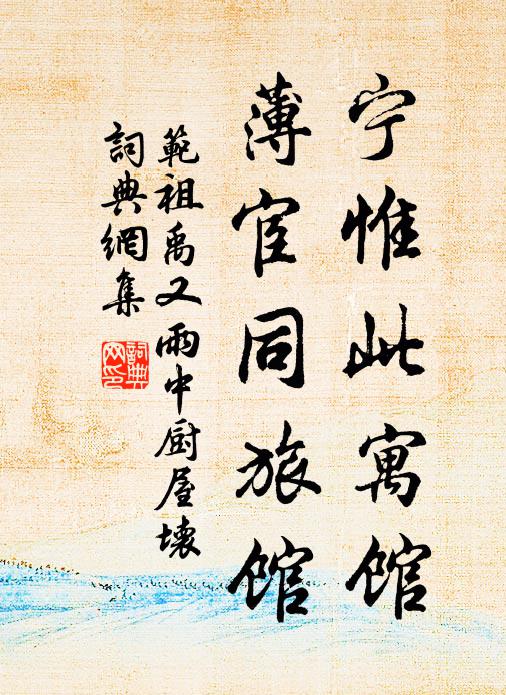 宁惟此寓馆
薄宦同旅馆
範祖禹又兩中厨屋壞
詞典網集
詞典網印